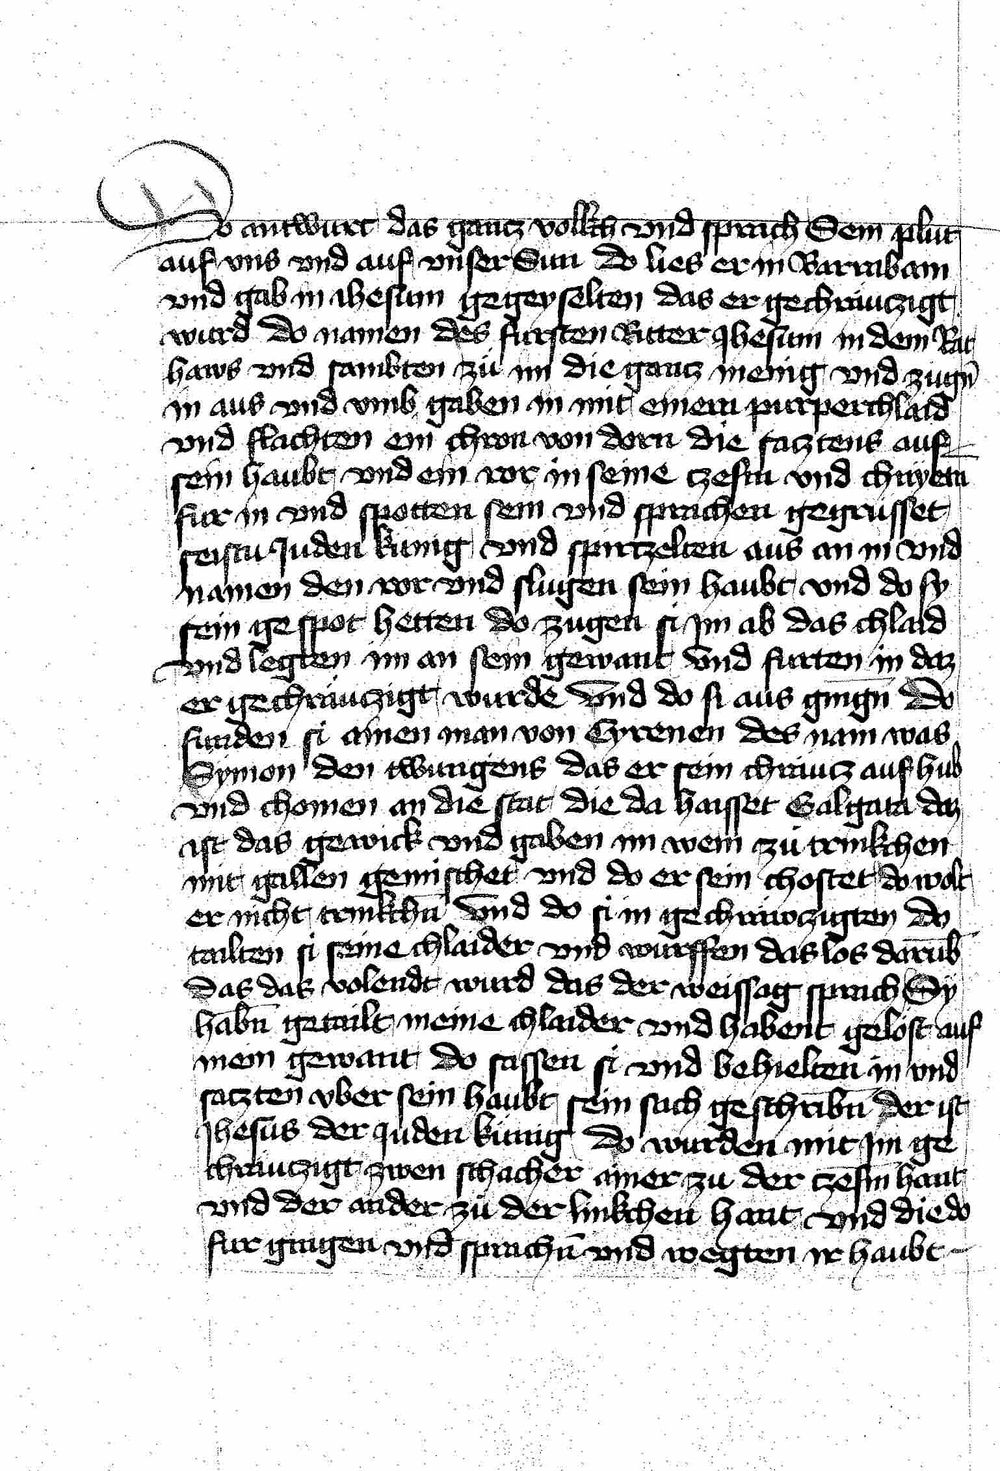 Do antwurt das gancz vollkch vnd sprach Sein plut
auf vns vnd auf vnser Sun Do lies er in Barrabam
vnd gab in ihesum gegeyselten das er gechräwczigt
wurd Do namen des fursten Ritter Jhesum in dem Rat
haws vnd sambten zü im die gancz menig vnd zugn̄
in aus vnd vmb gaben in mit einem purperchlaid
vnd flachten ein chron von dorn die sacztens auf
sein haubt vnd ein ror in seine czesm vnd chnyetn̄
fur in vnd spotten sein vnd sprachen gegrüsset
seistu Juden künig vnd spirczelten aus an in vnd
namen den ror vnd slugen sein haubt vnd do sy
sein gespot hetten do zugen si Im ab das chlaid
vnd legten im an sein gewant vnd furten in daz
er gechräwczigt wurde Vnd do si aus gingn̄ Do
funden si ainen man von Cyrenen des nam was
Symon den twungens das er sein chräucz auf hub
vnd chomen an die stat die da haisset Galgata daz
ist das gewick vnd gaben im wein zü trinkchen
mit gallen gemischet vnd do er sein chostet do wolt
er nicht trinkchn̄ Vnd do si in gechräwczigten Do
tailten si seine chlaider vnd wurffen das los darub̄
Das das volendt wurd das der weissag sprach Sy
habn̄ getailt meine chlaider vnd habent gelost auf
mein gewant Do sassen si vnd behielten in vnd
saczten vber sein haubt sein sach geschribn̄ der ist
Jhesus der Juden künig Do wurden mit Im ge
chräwczigt zwen schacher ainer zu der czesm hant
vnd der ander zü der linkchen hant Vnd die do
fur gingen vnd sprachn̄ vnd wegten ir haubt